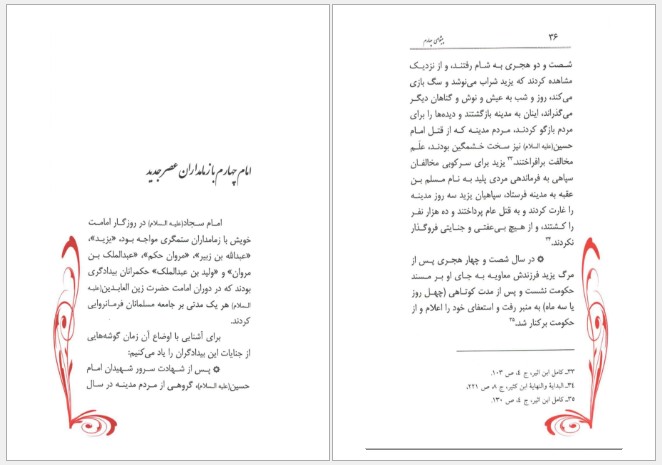 امام چهارم با زمامداران عصر جدید
امام سجاد(علیه السلام) در روزگار امامت
خویش با زمامداران ستمگری مواجه بود، «یزید»،
«عبدالله بن زبیر»، «مروان حکم»، «عبدالملک بن
مروان» و «ولید بن عبدالملک» حکمرانان بیدادگری
بودند که در دوران امامت حضرت زین العابدین(علیه
السلام) هر یک مدتی بر جامعه مسلمانان فرمانروایی
کردند.
برای آشنایی با اوضاع آن زمان گوشه‌هایی
از جنایات این بیدادگران را یاد می‌کنیم:
✪ پس از شهادت سرور شهیدان امام
حسین(علیه السلام)، گروهی از مردم مدینه در سال
۳۶
پیشوای چهارم
شصت و دو هجری به شام رفتند، و از نزدیک
مشاهده کردند که یزید شراب می‌نوشد و سگ بازی
می‌کند، روز و شب به عیش و نوش و گناهان دیگر
می‌گذراند، اینان به مدینه بازگشتند و دیده‌ها را برای
مردم بازگو کردند، مردم مدینه که از قتل امام
حسین(علیه السلام) نیز سخت خشمگین بودند، علَم
مخالفت برافراختند.۳۳ یزید برای سرکوبی مخالفان
سپاهی به فرماندهی مردی پلید به نام مسلم بن
عقبه به مدینه فرستاد، سپاهیان یزید سه روز مدینه
را غارت کردند و به قتل عام پرداختند و ده هزار نفر
را کشتند، و از هیچ بی‌عفتی و جنایتی فروگذار
نکردند.۳۴
✪ در سال شصت و چهار هجری پس از
مرگ یزید فرزندش معاویه به جای او بر مسند
حکومت نشست و پس از مدت کوتاهی (چهل روز
یا سه ماه) به منبر رفت و استعفای خود را اعلام و از
حکومت برکنار شد.۳۵
۳۳ـ کامل ابن اثیر، ج ٤، ص ۱۰۳.
۳٤ـ البدایة والنهایة ابن کثیر، ج ۸، ص ۲۲۱.
۳۵ـ کامل ابن اثیر، ج ٤، ص ۱۳۰.